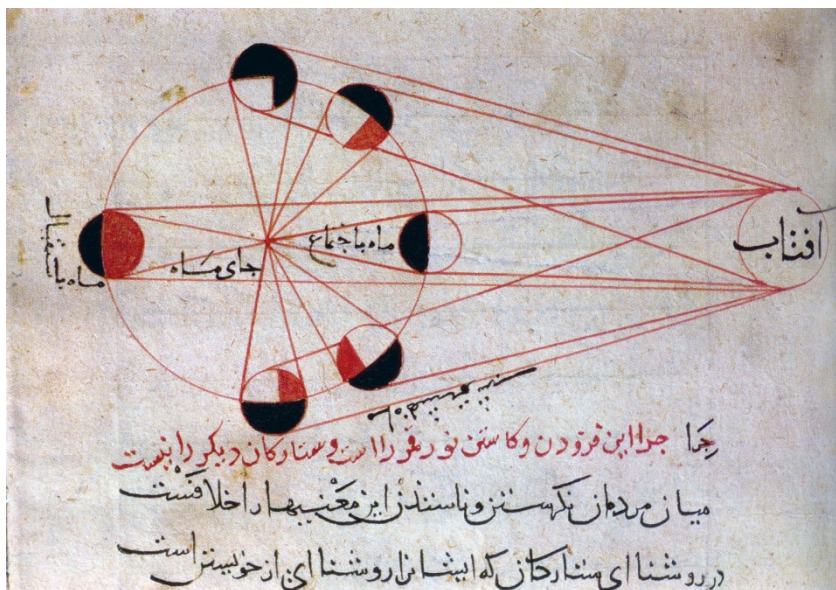 ماه باستقبال
جای ماه
ماه باجتماع
افتاب
جرا جرا این فزودن وکاستن نور قمر را است و ستارکان دیکر را نیست
میان مردمان نکرستن این معنیها را خلافست
در روشنای ستارکان که ایشانرا روشنای از خویشتن است